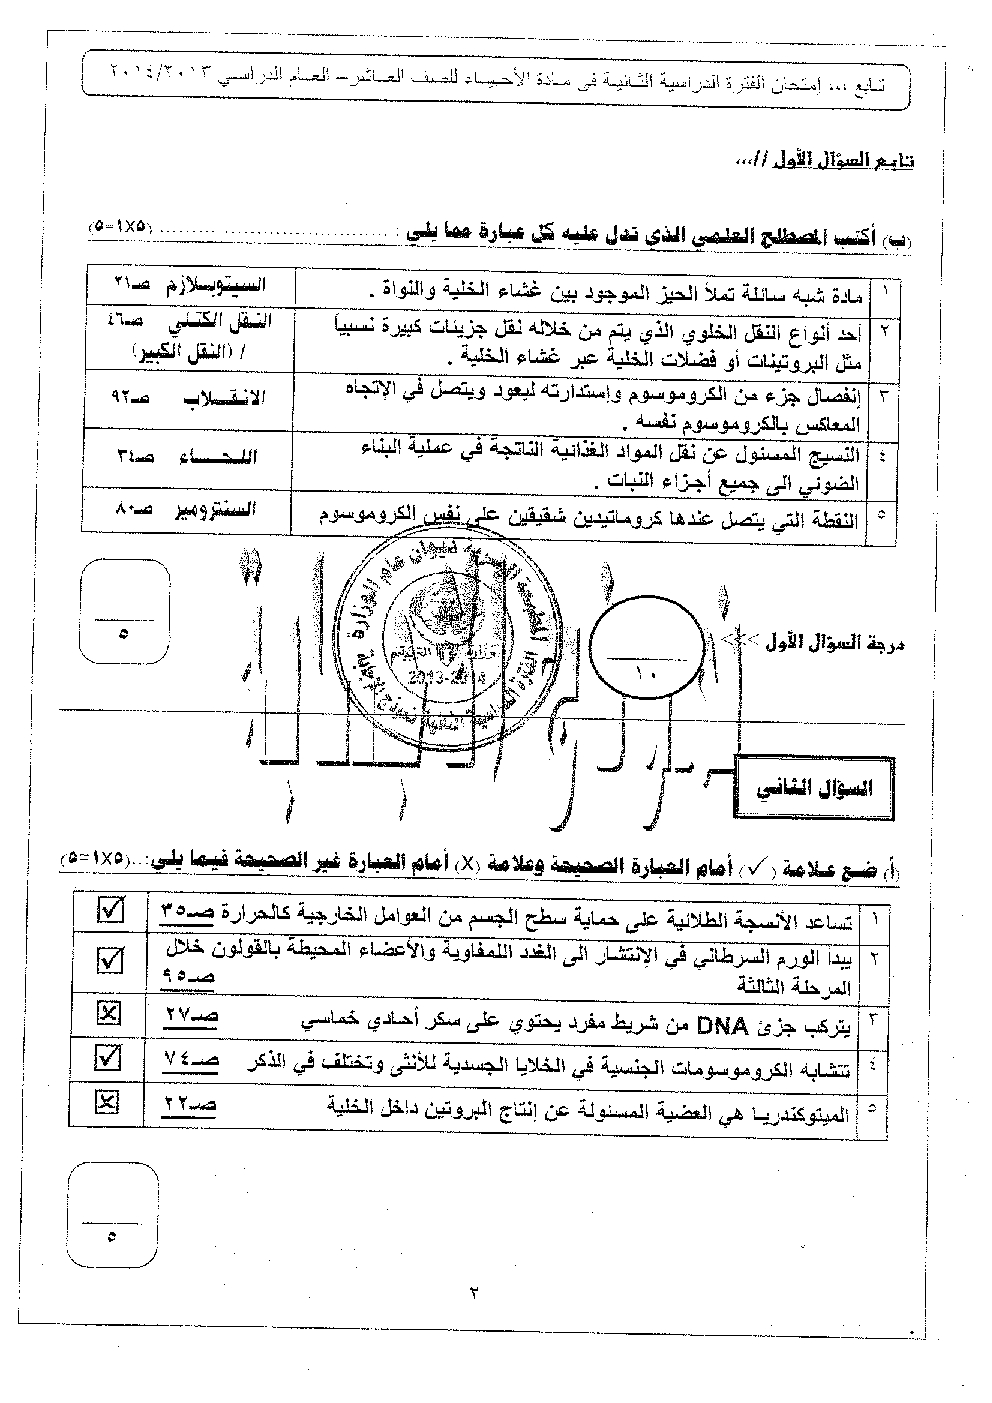 تابع ,,, إمتحان الفترة الدراسية الثانية في مادة الأحياء للصف العاشر – العام الدراسي ٢٠١٤/٢٠١٣
تابع السؤال الأول //,,,
(ب) أكتب المصطلح العلمي الذي تدل عليه كل عبارة مما يلي : ........................ (٥X١=٥)
١ مادة شبه سائلة تملأ الحيز الموجود بين غشاء الخلية والنواة . السيتوبلازم صـ٢١
٢ أحد أنواع النقل الخلوي الذي يتم من خلاله نقل جزيئات كبيرة نسبياً النقل الكتلي صـ٤٦
مثل البروتينات أو فضلات الخلية عبر غشاء الخلية . / (النقل الكبير)
٣ إنفصال جزء من الكروموسوم وإستدارته ليعود ويتصل في الإتجاه الانقلاب صـ٩٢
المعاكس بالكروموسوم نفسه .
٤ النسيج المسئول عن نقل المواد الغذائية الناتجة في عملية البناء اللحاء صـ٣٤
الضوئي الى جميع أجزاء النبات .
٥ النقطة التي يتصل عندها كروماتيدين شقيقين على نفس الكروموسوم السنتروميز صـ٨٠
٥
درجة السؤال الأول >>>
١٠
2013-2014
السؤال الثاني
(أ) ضع علامة (✓) أمام العبارة الصحيحة وعلامة (X) أمام العبارة غير الصحيحة فيما يلي:..(٥X١=٥)
١ تساعد الأنسجة الطلائية على حماية سطح الجسم من العوامل الخارجية كالحرارة صـ٣٥ ☑
٢ يبدأ الورم السرطاني في الإنتشار الى الغدد اللمفاوية والأعضاء المحيطة بالقولون خلال ☑
المرحلة الثالثة صـ٩٥
٣ يتركب جزئ DNA من شريط مفرد يحتوي على سكر أحادي خماسي صـ٢٧ ☒
٤ تتشابه الكروموسومات الجنسية في الخلايا الجسدية للأنثى وتختلف في الذكر صـ٧٤ ☑
٥ الميتوكندريا هي العضية المسئولة عن إنتاج البروتين داخل الخلية صـ٢٢ ☒
٥
٢